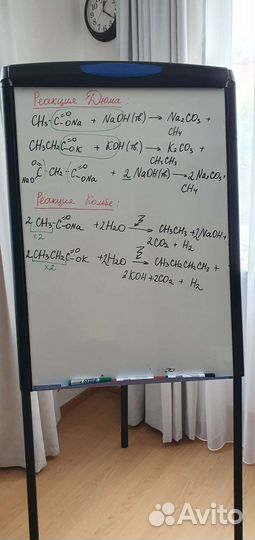 Реакция Дюма:
CH₃-C(=O)ONa + NaOH(тв) → Na₂CO₃ + CH₄
CH₃CH₂C(=O)OK + KOH(тв) → K₂CO₃ + CH₃CH₃
NaO-C(=O)-CH₂-C(=O)ONa + 2NaOH(тв) → 2Na₂CO₃ + CH₄
Реакция Кольбе:
2CH₃-C(=O)ONa + 2H₂O → CH₃CH₃ + 2NaOH + 2CO₂ + H₂
x2
2CH₃CH₂C(=O)OK + 2H₂O → CH₃CH₂CH₂CH₃ + 2KOH + 2CO₂ + H₂
x2
Avito